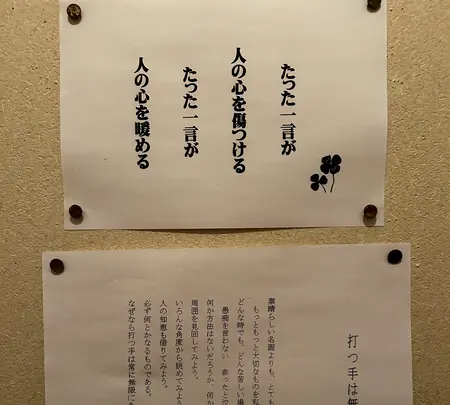 たった一言が
人の心を傷つける
たった一言が
人の心を暖める
打つ手は無
素晴らしい名画よりも、とても
もっともっと大切なものを私
どんな時でも、どんな苦しい場
愚痴を言わない 参ったと泣
何か方法はないだろうか、何か
周囲を見回してみよう。
いろんな角度から眺めてみよう
人の知恵も借りてみよう。
必ず何とかなるものである。
なぜなら打つ手は常に無限に